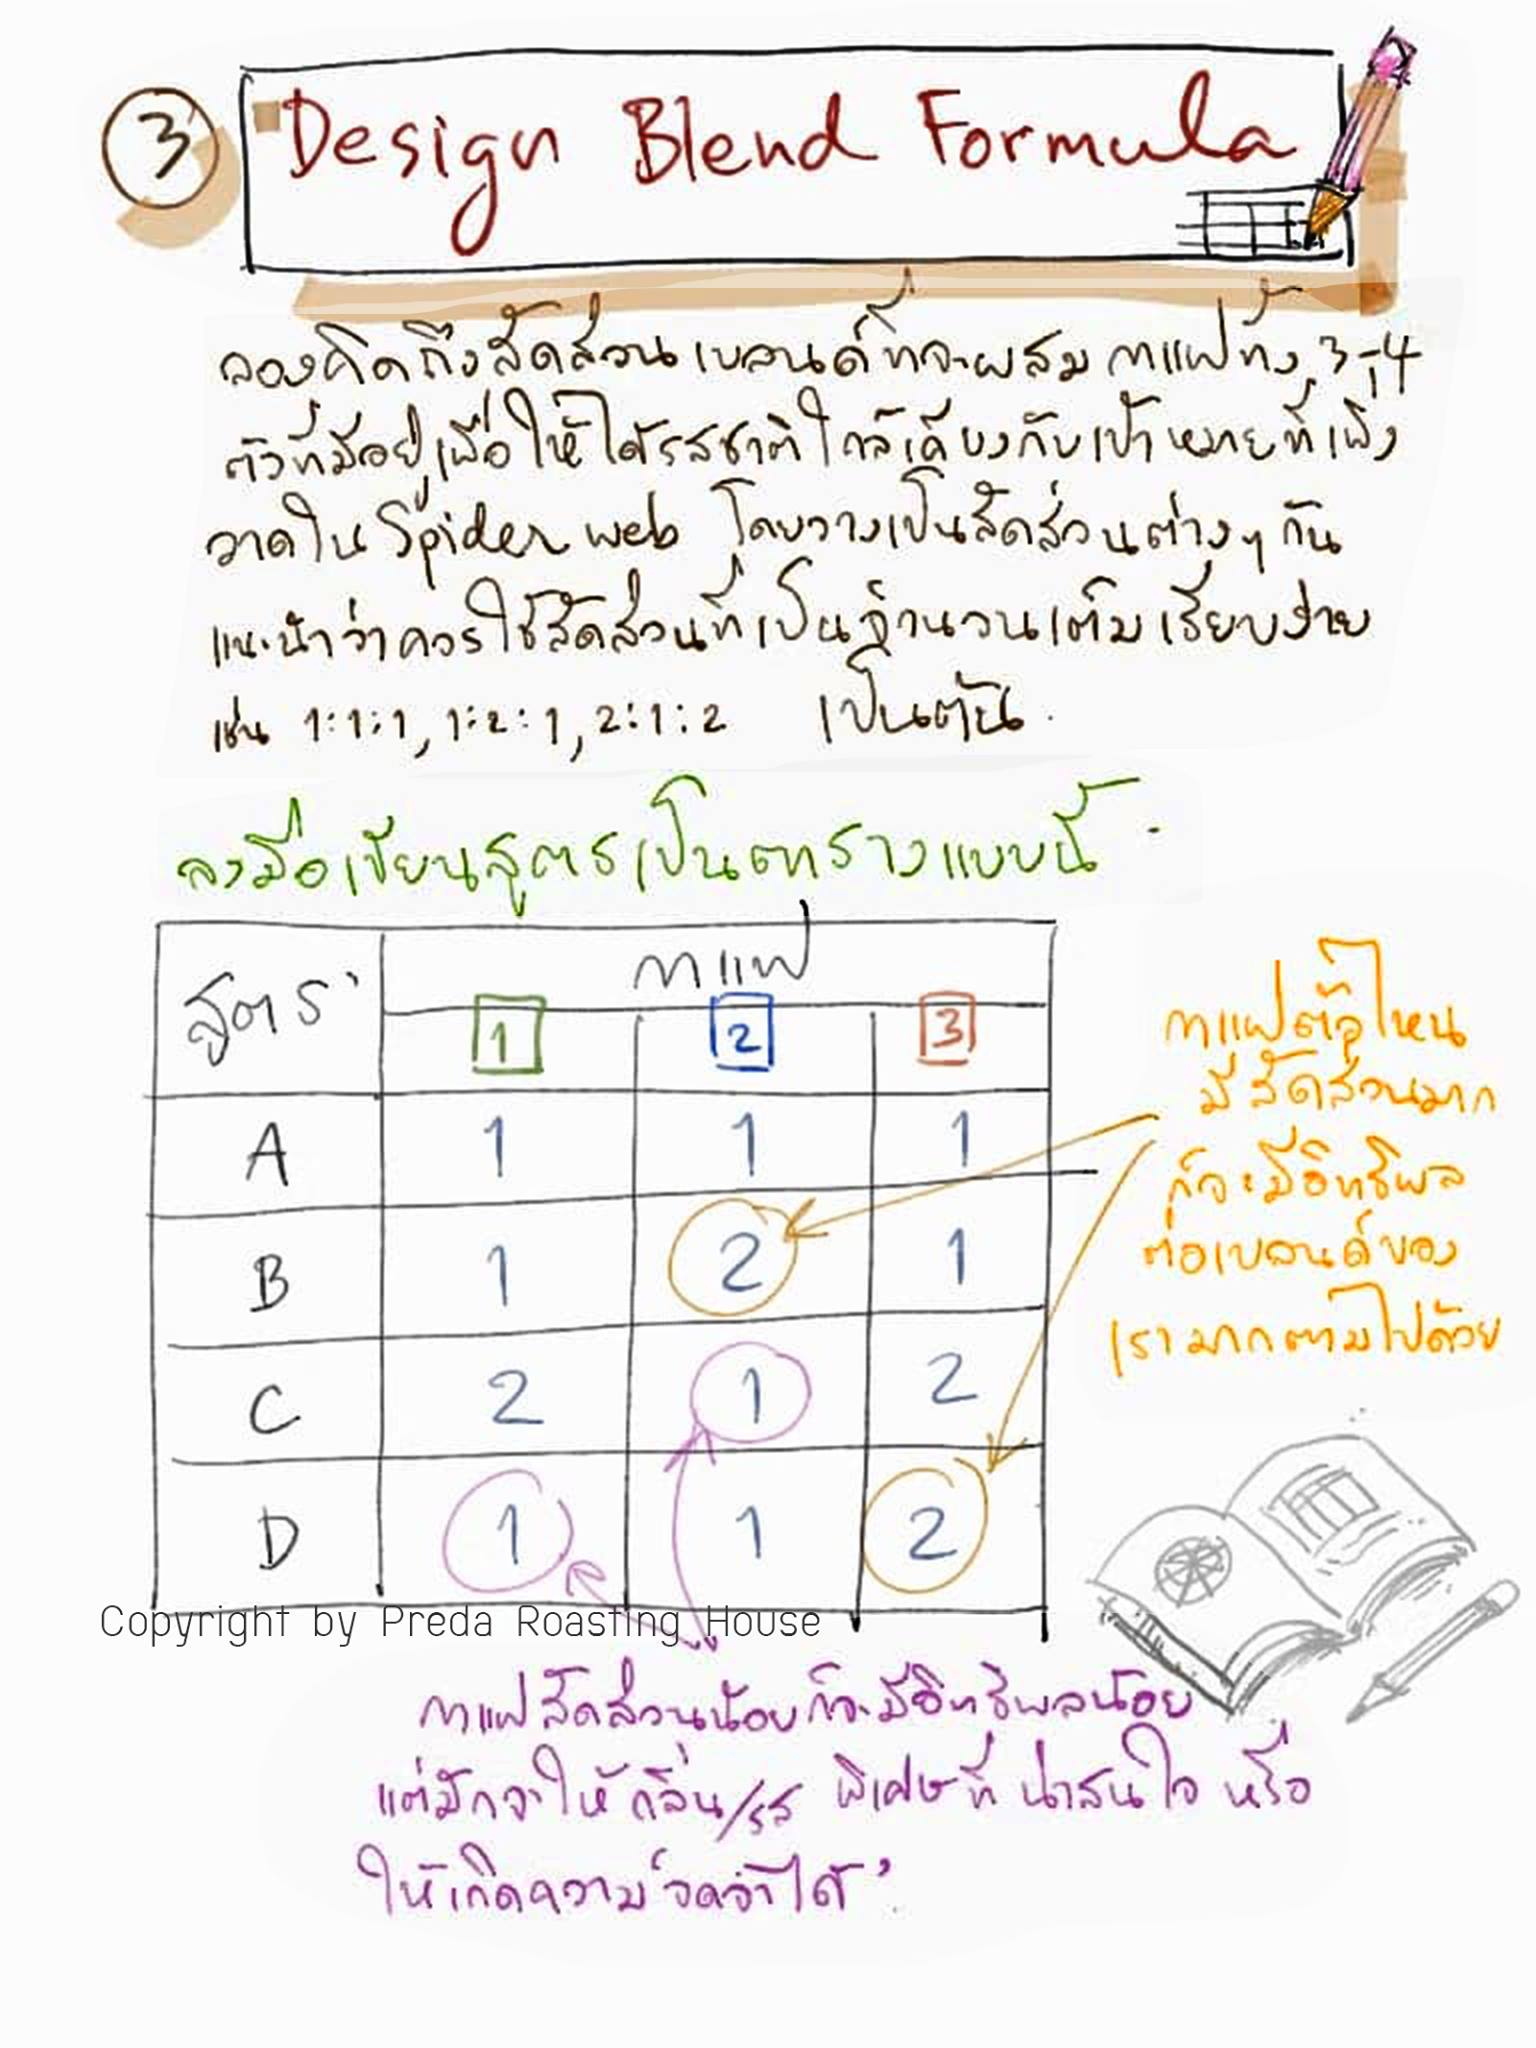 3
Design Blend Formula
ลองคิดถึงสัดส่วนเบลนด์ที่จะผสมกาแฟทั้ง 3-4
ตัวที่มีอยู่เพื่อให้ได้รสชาติใกล้เคียงกับเป้าหมายที่เพิ่ง
วาดใน Spider web โดยวางเป็นสัดส่วนต่างๆ กัน
แนะนำว่าควรใช้สัดส่วนที่เป็นจำนวนเต็มเรียบง่าย
เช่น 1:1:1, 1:2:1, 2:1:2 เป็นต้น
ลงมือเขียนสูตรเป็นตารางแบบนี้
สูตร กาแฟ
1 2 3
A 1 1 1
B 1 2 1
C 2 1 2
D 1 1 2
กาแฟตัวไหน
มีสัดส่วนมาก
ก็จะมีอิทธิพล
ต่อเบลนด์ของ
เรามากตามไปด้วย
Copyright by Preda Roasting House
กาแฟสัดส่วนน้อยก็จะมีอิทธิพลน้อย
แต่มักจะให้กลิ่น/รส พิเศษที่น่าสนใจ หรือ
ให้เกิดความจดจำได้